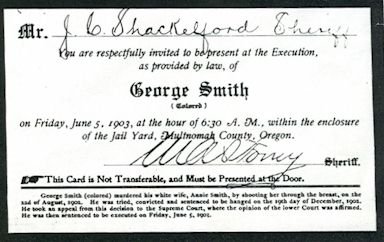 Mr. J. C. Shackelford Sheriff
You are respectfully invited to be present at the Execution,
as provided by law, of
George Smith
(Colored)
on Friday, June 5, 1903, at the hour of 6:30 A. M., within the enclosure
of the Jail Yard, Multnomah County, Oregon.
Sheriff.
This Card is Not Transferable, and Must be Presented at the Door.
George Smith (colored) murdered his white wife, Annie Smith, by shooting her through the breast, on the
22d of August, 1902. He was tried, convicted and sentenced to be hanged on the 19th day of December, 1902.
He took an appeal from this decision to the Supreme Court, where the opinion of the lower Court was affirmed.
He was then sentenced to be executed on Friday, June 5, 1903.